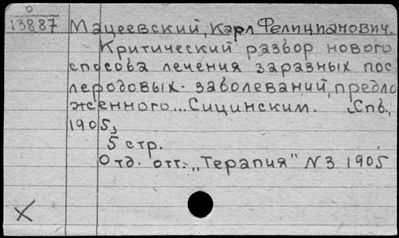 0
13887 Мацеевский, Карл Фелицианович.
Критический разбор нового
способа лечения заразных пос
леродовых заболеваний, предло
женного... Сицинским. Спб.,
1905,
5 стр.
Отд. отт. „Терапия" N3 1905
X